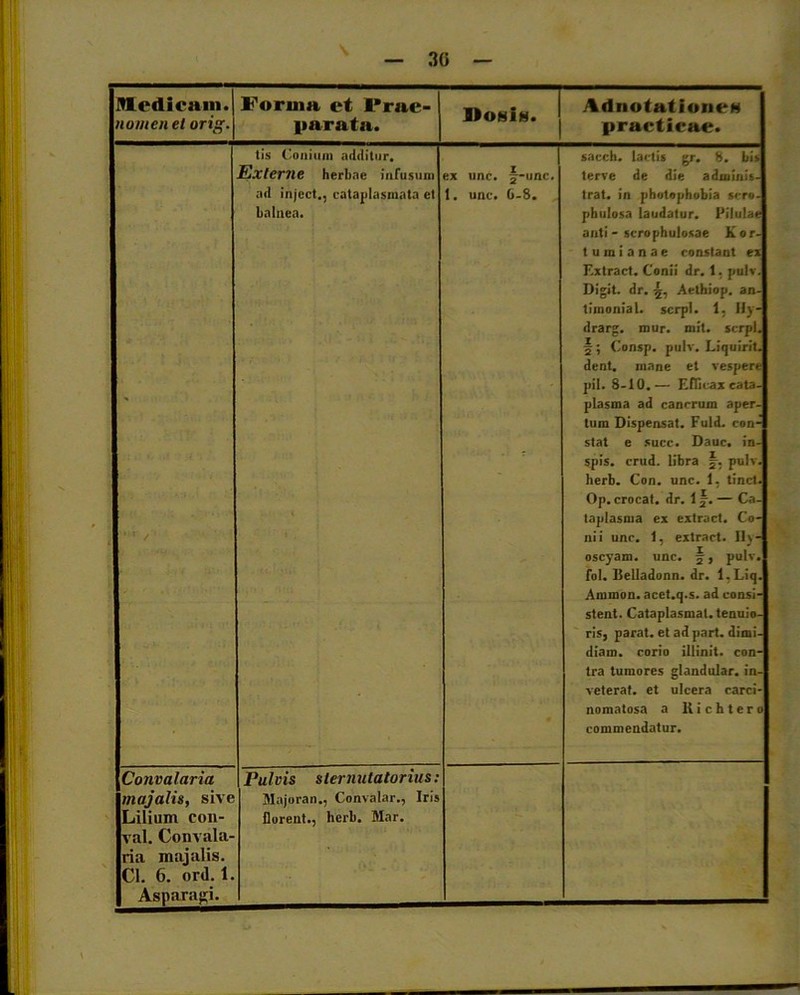 — 36 —
Medicam.
nomen et orig.
Forma et Prae-
parata.
Dosis.
Adnotationes
practicae.
tis Conium additur.
Externe herbae infusum
ad inject., cataplasmata et
balnea.
ex unc. ½-unc.
1. unc. 6-8.
sacch. lactis gr. 8. bis
terve de die adminis-
trat. in photophobia scro-
phulosa laudatur. Pilulae
anti - scrophulosae Kor-
tumianae constant ex
Extract. Conii dr. 1, pulv.
Digit. dr. ½, Aethiop. an-
timonial. scrpl. 1, Hy-
drarg. mur. mit. scrpl.
½; Consp. pulv. Liquirit.
dent. mane et vespere
pil. 8-10. — Efficax cata-
plasma ad cancrum aper-
tum Dispensat. Fuld. con-
stat e succ. Dauc. in-
spis. crud. libra ½, pulv.
herb. Con. unc. 1, tinct.
Op. crocat. dr. 1½. — Ca-
taplasma ex extract. Co-
nii unc. 1, extract. Hy-
oscyam. unc. ½, pulv.
fol. Belladonn. dr. 1, Liq.
Ammon. acet. q.s. ad consi-
stent. Cataplasmat. tenuio-
ris, parat. et ad part. dimi-
diam. corio illinit. con-
tra tumores glandular. in-
veterat. et ulcera carci-
nomatosa a Richtero
commendatur.
Convalaria
majalis, sive
Lilium con-
val. Convala-
ria majalis.
Cl. 6. ord. 1.
Asparagi.
Pulvis sternutatorius:
Majoran., Convalar., Iris
florent., herb. Mar.